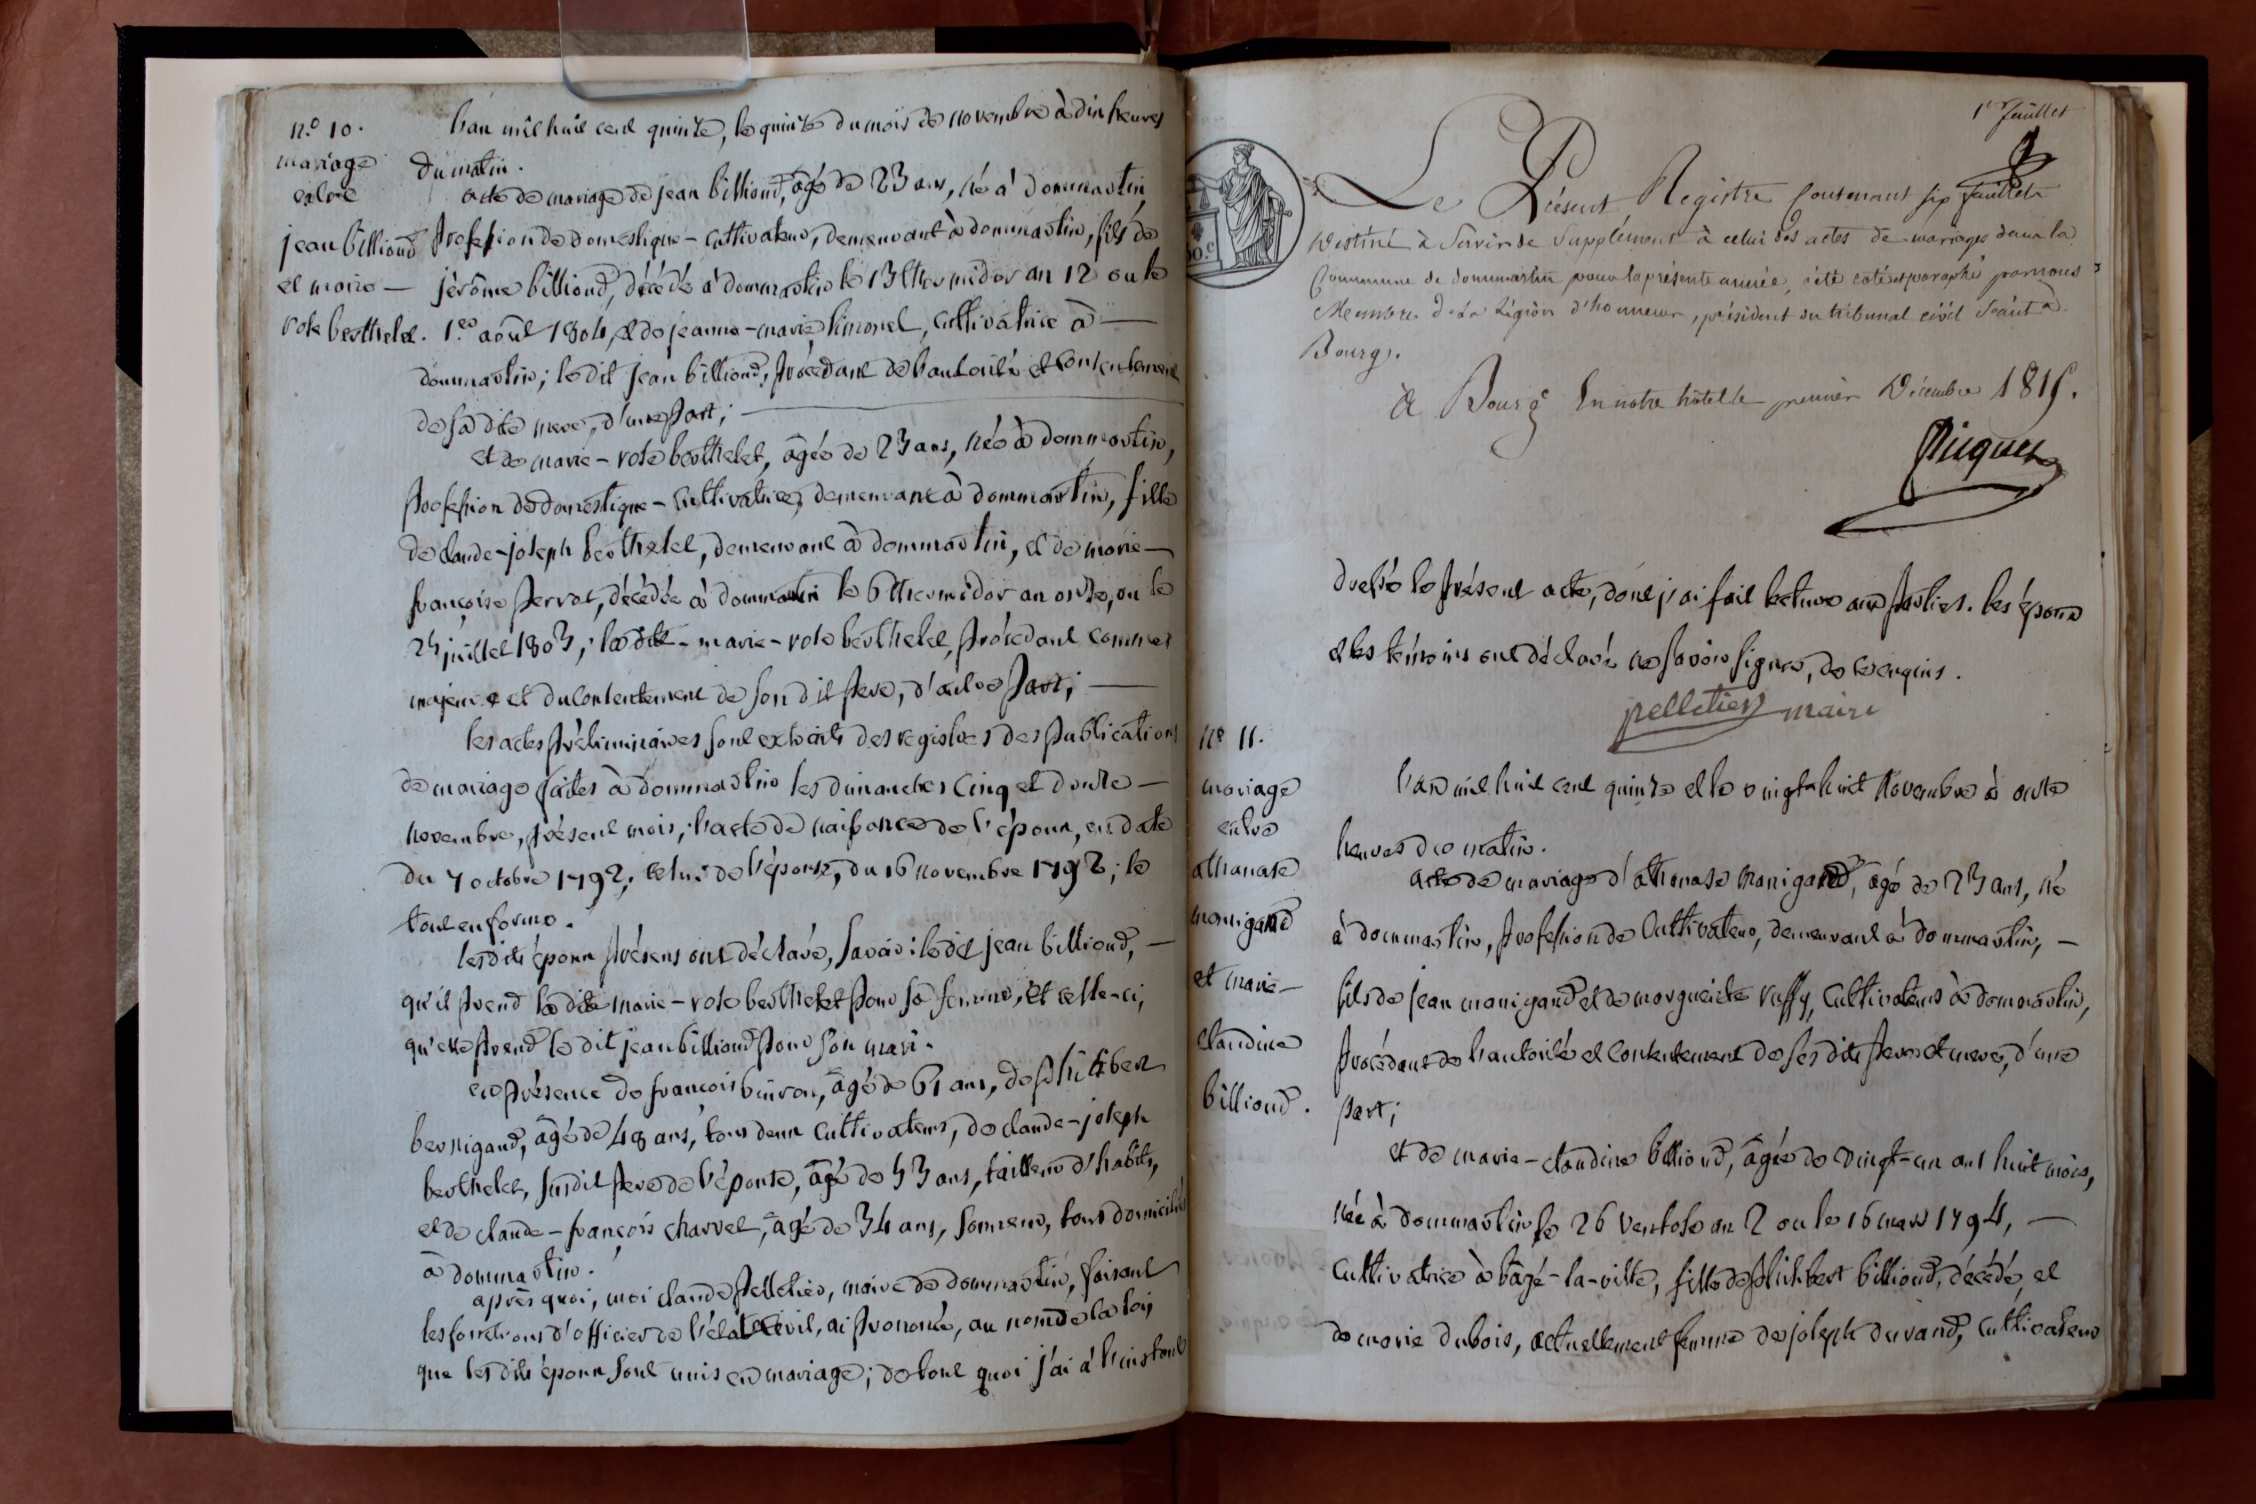 n.o 10.
mariage
entre
jean billioud
et marie —
rose berthelet.
L'an mil huit cent quinze, le quinze du mois de novembre à dix heures
du matin.
acte de mariage de jean billioud, âgé de 23 ans, né à dommartin,
profession de domestique – cultivateur, demeurant à dommartin, fils de
jérôme billioud, décédé à dommartin le 13 thermidor an 12 ou le
1.er août 1804, et de jeanne-marie limonet, cultivatrice à —
dommartin; le dit jean billioud, procédant de l'autorité et contentement
de sa dite mere, d'une part; —
et de marie – rose berthelet, âgée de 23 ans, née à dommartin,
profession de domestique – cultivatrice, demeurant à dommartin, fille
de claude-joseph berthelet, demeurant à dommartin, et de marie —
françoise perrat, décédée à dommartin le 6 thermidor an onze, ou le
25 juillet 1803; la dite – marie – rose berthelet, procédant comme
majeure et du contentement de son dit pere, d'autre part; —
les actes préliminaires sont extraits des registres des publications
de mariage faites à dommartin les dimanches cinq et douze —
novembre, présent mois; l'acte de naissance de l'époux, en date
du 7 octobre 1792; celui de l'épouse, du 16 novembre 1792; le
tout en forme.
les dits époux présens ont déclaré, savoir: le dit jean billioud, —
qu'il prend la dite marie – rose berthelet pour sa femme, et celle-ci,
qu'elle prend le dit jean billioud pour son mari.
en présence de françois buiron, âgé de 61 ans, de philibert
bernigaud, âgé de 48 ans, tous deux cultivateurs, de claude-joseph
berthelet, susdit pere de l'épouse, âgé de 53 ans, tailleur d'habits,
et de claude – françois charvet, âgé de 34 ans, sonneur, tous domiciliés
à dommartin.
après quoi, moi claude pelletier, maire de dommartin, faisant
les fonctions d'officier de l'état civil, ai prononcé, au nom de la loi,
que les dits époux sont unis en mariage; de tout quoi j'ai à l'instant
1er feuillet
Le Présent Registre contenant six feuillets
Destiné à Servir de Supplément à celui des actes de mariages dans la
Commune de dommartin pour la présente année, a été coté et paraphé par nous
Membre de La Légion d'honneur, président du tribunal civil Séant à
Bourg.
A Bourg En notre hôtel le premier Décembre 1815.
Picquet
dressé le présent acte, dont j'ai fait lecture aux parties. les époux
et les témoins ont déclaré ne savoir signer, de ce enquis.
pelletier maire
n.o 11.
mariage
entre
athanase
manigand
et marie —
claudine
billioud.
L'an mil huit cent quinze et le vingt-huit Novembre à onze
heures du matin.
acte de mariage d'athanase Manigand, âgé de 23 ans, né
à dommartin, profession de Cultivateur, demeurant à dommartin, —
fils de jean manigand et de marguerite ruffy, Cultivateurs à dommartin,
procédant de l'autorité et Contentement de ses dits pere et mere, d'une
part;
et de marie – claudine billioud, âgée de vingt-un ans huit mois,
née à dommartin le 26 ventose an 2 ou le 16 mars 1794, —
Cultivatrice à bâgé-la-ville, fille de philibert billioud, décédé, et
de marie dubois, actuellement femme de joseph durand, cultivateur